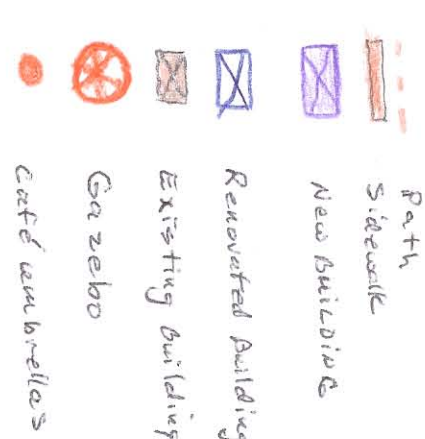 Path
Sidewalk
New BuiLDiNG
Renovated Building
Existing Building
Gazebo
Café umbrellas